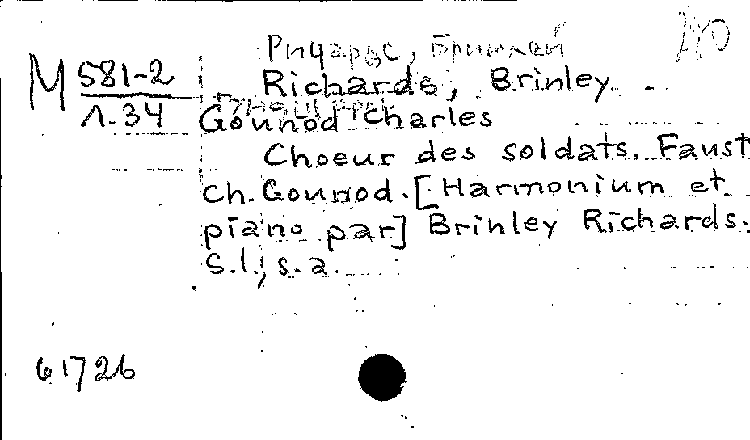 Ричардс, Бринлей
М 581-2 Richards, Brinley
Л. 34 Gounod Charles
Choeur des soldats. Faust
Ch. Gounod. [Harmonium et
piano par] Brinley Richards.
S.l., s.a.
61726